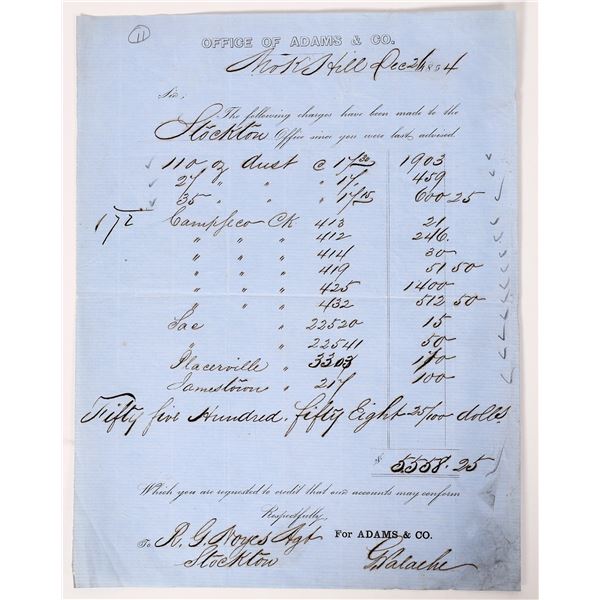 11
OFFICE OF ADAMS & CO.
Mok Hill Dec 26 1854
Sir:
The following charges have been made to the
Stockton Office since you were last advised
110 oz dust @ 17/30 1903
27 " " " 17/ 459
35 " " " 17/15 600 25
172 Camp Seco CK 413 21
" " " 412 246.
" " " 414 30
" " " 419 51 50
" " " 425 1400
" " " 432 512 50
Sac " 22520 15
" " 22541 50
Placerville " 3303 170
Jamestown " 217 100
Fifty five Hundred, fifty Eight 25/100 dolls.
$ 5558.25
Which you are requested to credit that our accounts may conform
Respectfully,
To R. G. Noyes Agt For ADAMS & CO.
Stockton G Palache